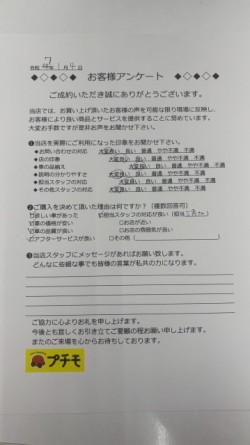 令和 7年 1月 4日
◆◇◆◇◆ お客様アンケート ◆◇◆◇◆
ご成約いただき誠にありがとうございます。
当店では、お買い上げ頂いたお客様の声を可能な限り現場に反映し、
お客様により良い商品とサービスを提供することに努めています。
大変お手数ですが是非お声をお聞かせ下さい。
❶当店を実際にご利用になった印象をお聞かせ下さい。
●お問い合わせの対応 大変良い 良い 普通 やや不満 不満
●店の印象 大変良い 良い 普通 やや不満 不満
●車の品揃え 大変良い 良い 普通 やや不満 不満
●説明の分かりやすさ 大変良い 良い 普通 やや不満 不満
●担当スタッフの対応 大変良い 良い 普通 やや不満 不満
●その他スタッフの対応 大変良い 良い 普通 やや不満 不満
❷ご購入を決めて頂いた理由は何ですか?(複数回答可)
欲しい車があった 担当スタッフの対応が良い(担当
車の価格が安い □お店が近い
車の品質が良い □お店の雰囲気が良い
アフターサービスが良い □その他(
❸当店スタッフにメッセージがあればお願い致します。
どんなに些細な事でも皆様の言葉が私共の力になります。
ご協力に心よりお礼を申し上げます。
今後とも宜しくお引き立てご愛顧の程お願い申し上げます。
またのご来場を心からお待ちしております。
プチモ